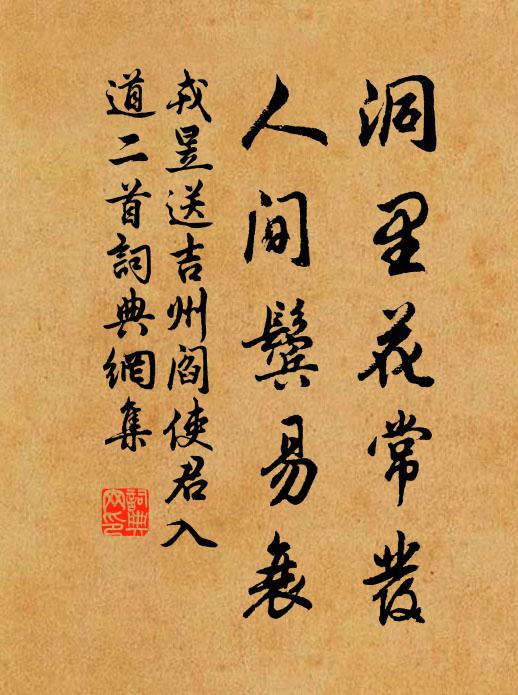 洞里花常發
人间鬓易衰
戎昱送吉州阎使君入
道二首詞典網集
詞典
网印